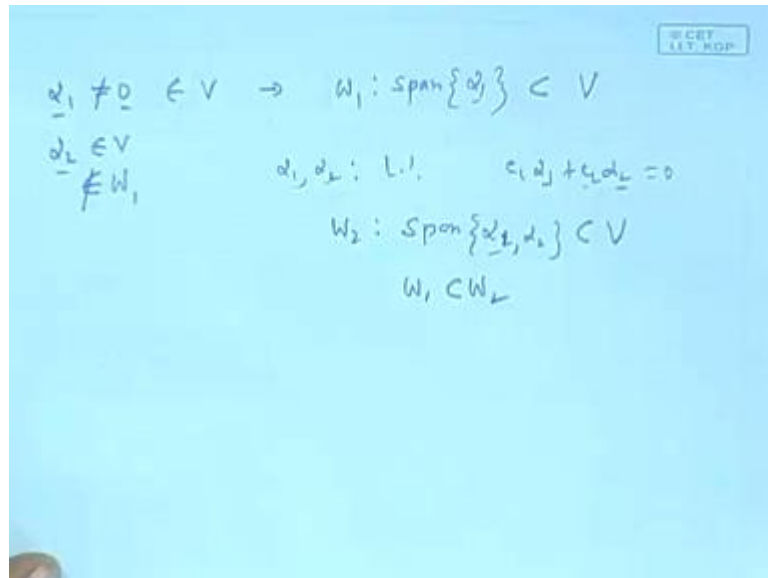 © CET
I.I.T. KGP
α₁ ≠ 0 ∈ V → W₁ : span{α₁} ⊂ V
α₂ ∈ V
∉ W₁
α₁, α₂ : L.I. c₁α₁ + c₂α₂ = 0
W₂ : Span{α₁, α₂} ⊂ V
W₁ ⊂ W₂